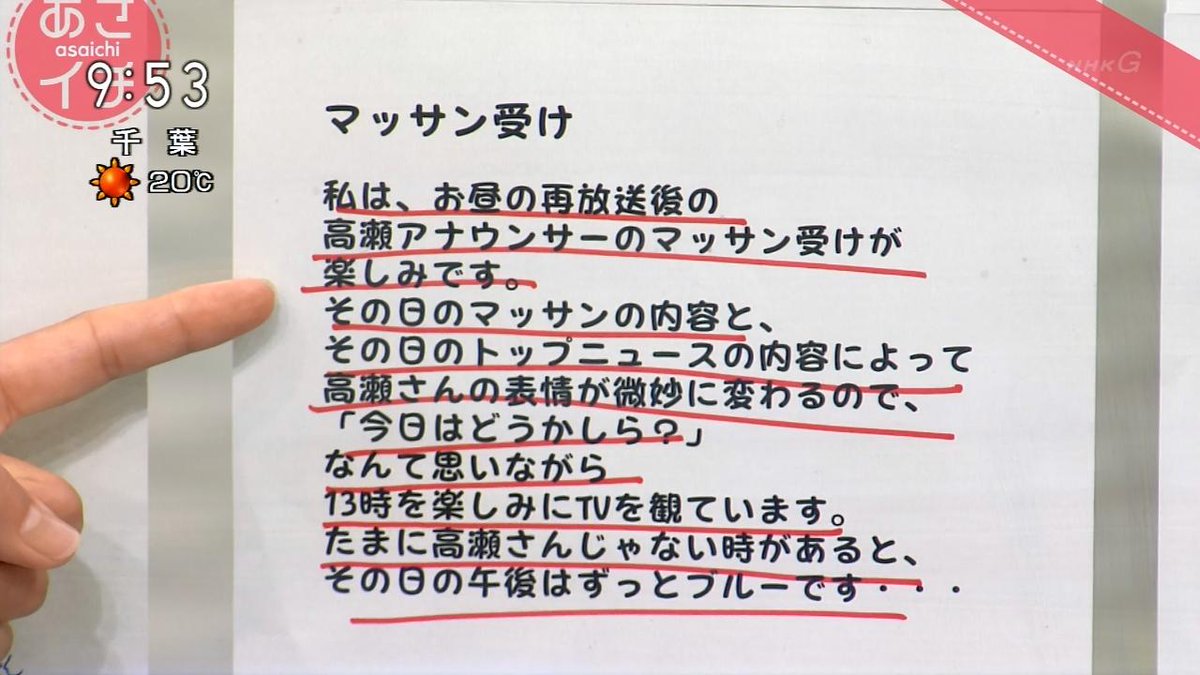 あさ
asaichi
イチ
9:53
千葉
20℃
NHK G
マッサン受け
私は、お昼の再放送後の
高瀬アナウンサーのマッサン受けが
楽しみです。
その日のマッサンの内容と、
その日のトップニュースの内容によって
高瀬さんの表情が微妙に変わるので、
「今日はどうかしら？」
なんて思いながら
13時を楽しみにTVを観ています。
たまに高瀬さんじゃない時があると、
その日の午後はずっとブルーです・・・